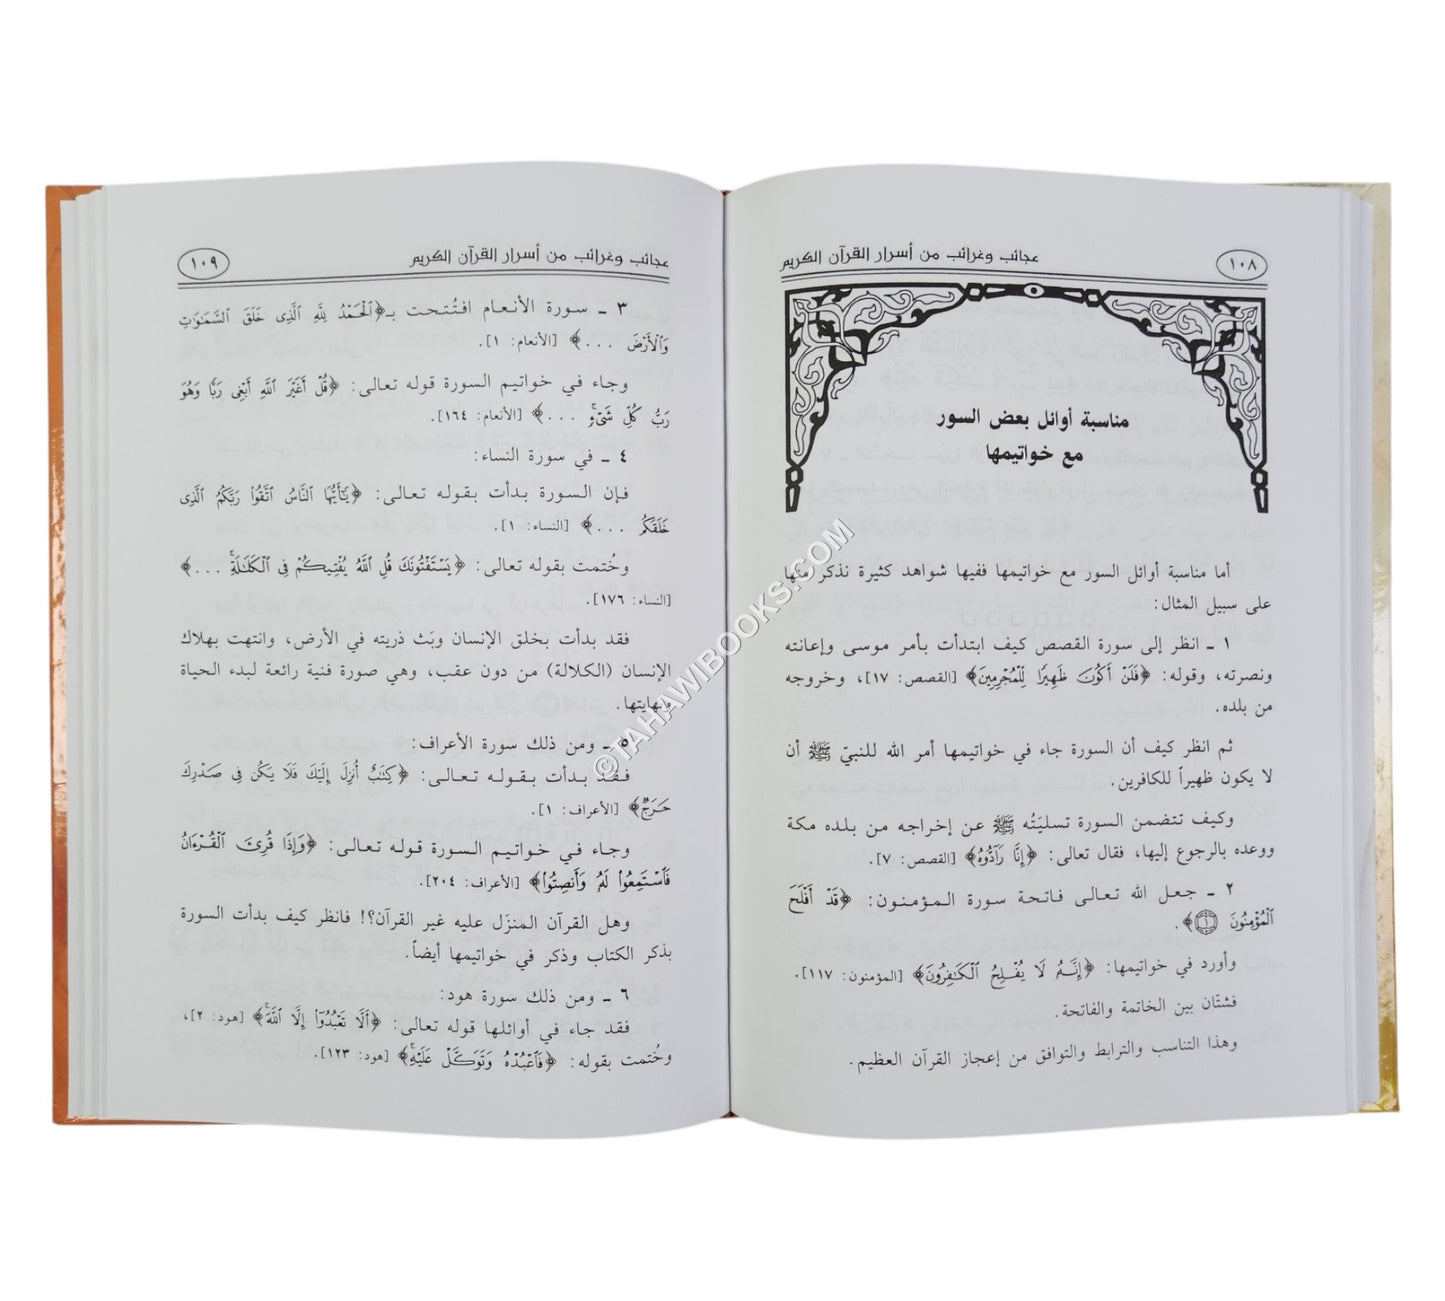 ١٠٨
عجائب وغرائب من أسرار القرآن الكريم
مناسبة أوائل بعض السور
مع خواتيمها
أما مناسبة أوائل السور مع خواتيمها ففيها شواهد كثيرة نذكر منها
على سبيل المثال:
١ ـ انظر إلى سورة القصص كيف ابتدأت بأمر موسى وإعانته
ونصرته، وقوله: ﴿فَلَنْ أَكُونَ ظَهِيرًا لِّلْمُجْرِمِينَ﴾ [القصص: ١٧]، وخروجه
من بلده.
ثم انظر كيف أن السورة جاء في خواتيمها أمر الله للنبيّ ﷺ أن
لا يكون ظهيراً للكافرين.
وكيف تتضمن السورة تسليَتُه ﷺ عن إخراجه من بلده مكة
ووعده بالرجوع إليها، فقال تعالى: ﴿إِنَّا رَآدُّوهُ﴾ [القصص: ٧].
٢ ـ جعل الله تعالى فاتحة سورة المؤمنون: ﴿قَدْ أَفْلَحَ
ٱلْمُؤْمِنُونَ ١﴾.
وأورد في خواتيمها: ﴿إِنَّهُۥ لَا يُفْلِحُ ٱلْكَٰفِرُونَ﴾ [المؤمنون: ١١٧].
فشتّان بين الخاتمة والفاتحة.
وهذا التناسب والترابط والتوافق من إعجاز القرآن العظيم.
عجائب وغرائب من أسرار القرآن الكريم
١٠٩
٣ ـ سورة الأنعام افتُتحت بـ﴿ٱلْحَمْدُ لِلَّهِ ٱلَّذِى خَلَقَ ٱلسَّمَٰوَٰتِ
وَٱلْأَرْضَ ...﴾ [الأنعام: ١].
وجاء في خواتيم السورة قوله تعالى: ﴿قُلْ أَغَيْرَ ٱللَّهِ أَبْغِى رَبًّا وَهُوَ
رَبُّ كُلِّ شَىْءٍ ...﴾ [الأنعام: ١٦٤].
٤ ـ في سورة النساء:
فإن السورة بدأت بقوله تعالى: ﴿يَٰٓأَيُّهَا ٱلنَّاسُ ٱتَّقُوا۟ رَبَّكُمُ ٱلَّذِى
خَلَقَكُم ...﴾ [النساء: ١].
وخُتمت بقوله تعالى: ﴿يَسْتَفْتُونَكَ قُلِ ٱللَّهُ يُفْتِيكُمْ فِى ٱلْكَلَٰلَةِ ...﴾
[النساء: ١٧٦].
فقد بدأت بخلق الإنسان وبَث ذريته في الأرض، وانتهت بهلاك
الإنسان (الكلالة) من دون عقب، وهي صورة فنية رائعة لبدء الحياة
ونهايتها.
٥ ـ ومن ذلك سورة الأعراف:
فقد بدأت بقوله تعالى: ﴿كِتَٰبٌ أُنزِلَ إِلَيْكَ فَلَا يَكُن فِى صَدْرِكَ
حَرَجٌ﴾ [الأعراف: ١].
وجاء في خواتيم السورة قوله تعالى: ﴿وَإِذَا قُرِئَ ٱلْقُرْءَانُ
فَٱسْتَمِعُوا۟ لَهُۥ وَأَنصِتُوا۟﴾ [الأعراف: ٢٠٤].
وهل القرآن المنزَل عليه غير القرآن؟! فانظر كيف بدأت السورة
بذكر الكتاب وذكر في خواتيمها أيضاً.
٦ ـ ومن ذلك سورة هود:
فقد جاء في أوائلها قوله تعالى: ﴿أَلَّا تَعْبُدُوٓا۟ إِلَّا ٱللَّهَ﴾ [هود: ٢]،
وخُتمت بقوله: ﴿فَٱعْبُدْهُ وَتَوَكَّلْ عَلَيْهِ﴾ [هود: ١٢٣].
©TAHAWIBOOKS.COM